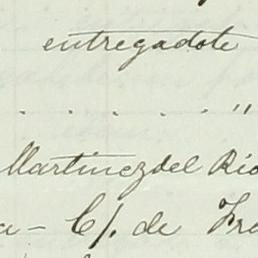 entregadote
. . . . . "
Martinezdel Rio
a - C/. de Fra